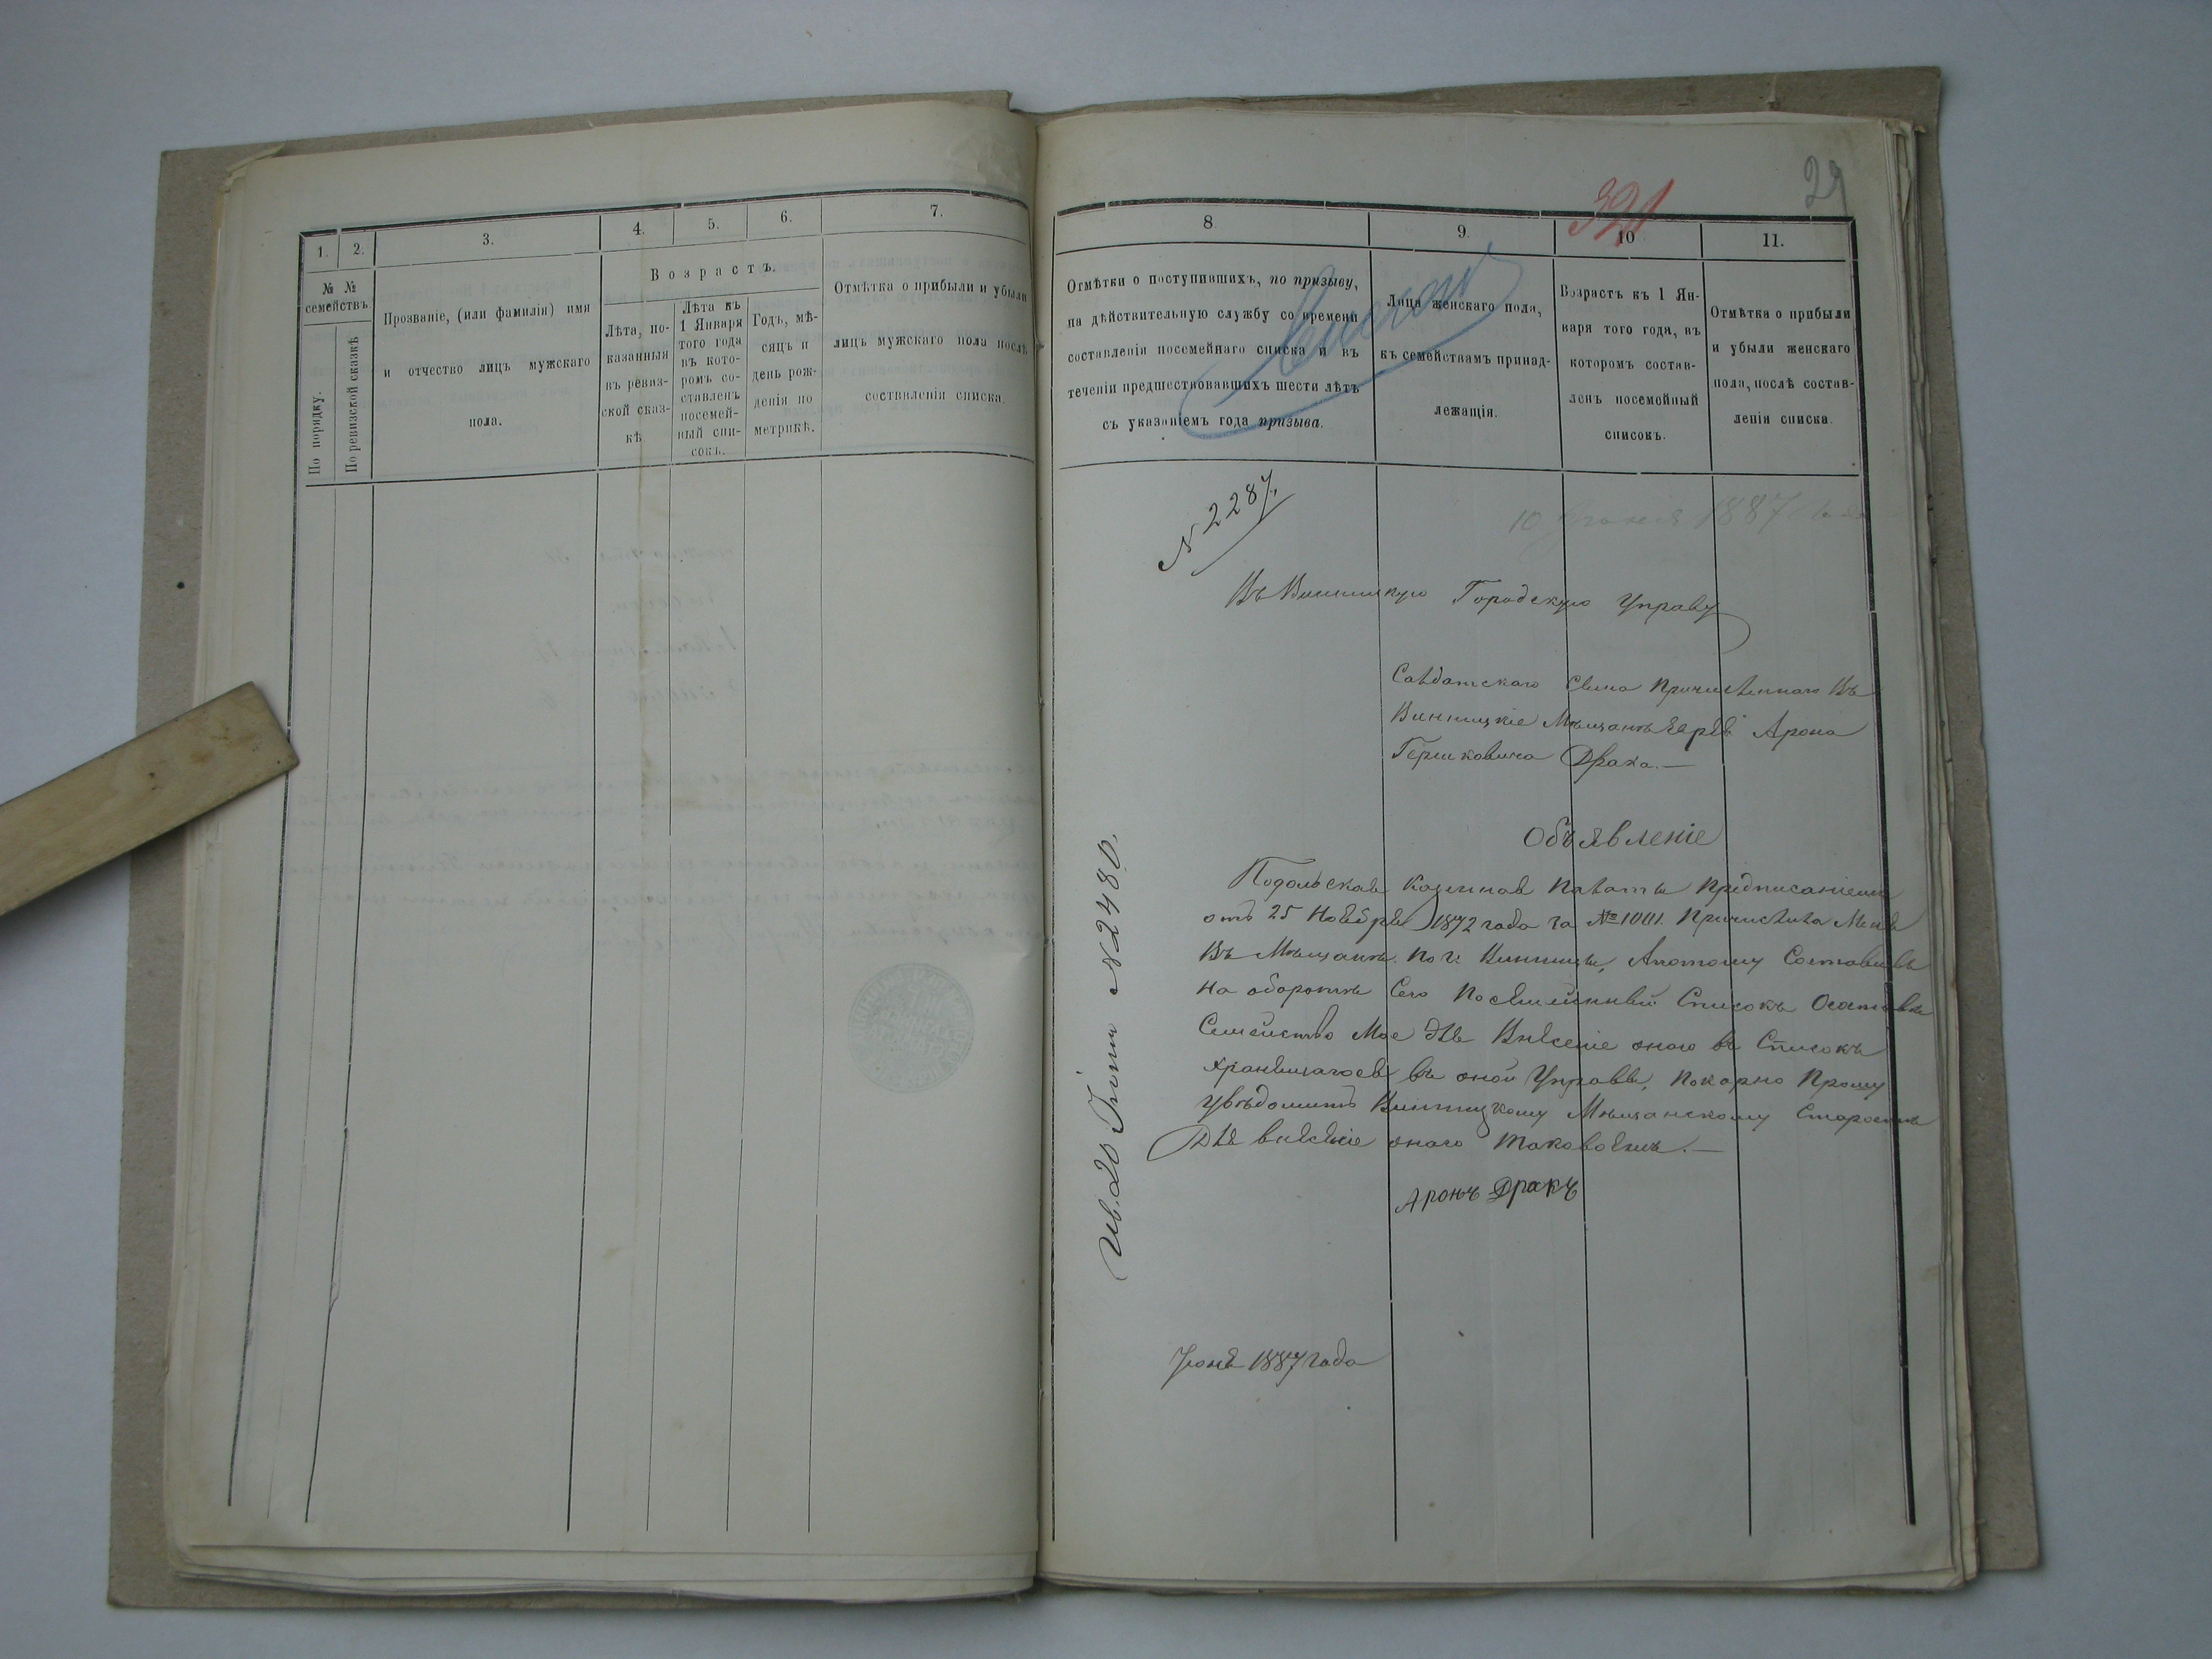 1. 2. 3. 4. 5. 6. 7.
№ № семействъ
По порядку.
По ревизской сказкѣ
Прозваніе, (или фамилія) имя
и отчество лицъ мужскаго
пола.
Возрастъ.
Лѣта, по-
казанныя
въ ревиз-
ской сказ-
кѣ
Лѣта къ
1 Января
того года
въ кото-
ромъ со-
ставленъ
посемей-
ный спи-
сокъ.
Годъ, мѣ-
сяцъ и
день рож-
денія по
метрикѣ.
Отмѣтка о прибыли и убыли
лицъ мужскаго пола послѣ
составленія списка.
29
321
8 9. 10 11.
Отмѣтки о поступившихъ, по призыву,
на дѣйствительную службу со времени
составленія посемейнаго списка и въ
теченіи предшествовавшихъ шести лѣтъ
съ указаніемъ года призыва.
Лица женскаго пола,
къ семействамъ принад-
лежащія.
Возрастъ къ 1 Ян-
варя того года, въ
которомъ состав-
ленъ посемейный
списокъ.
Отмѣтка о прибыли
и убыли женскаго
пола, послѣ состав-
ленія списка.
N 2287.
10 1887
Въ Винницкую Городскую Управу
Салдатскаго Сына Причисленнаго Въ
Винницкіе Мѣщане Арона
Гершковича Драка.—
Объявленіе
Подольская Казенная Палата Предписаніемъ
отъ 25 Ноября 1872 года за № 1001. Причислила Меня
Въ Мѣщане по г. Винницы, Апотому Составивъ
На оборотѣ Сего Посемейный Списокъ
Семейство Мое для Внесеніе оного въ Списокъ
хранящагося въ оной Управѣ, Покорно Прошу
увѣдомить Винницкому Мѣщанскому Старостѣ
Для внесеніе онаго таковоемъ.—
Аронъ Дракъ
20 Іюня N 2480.
Іюня 1887 года